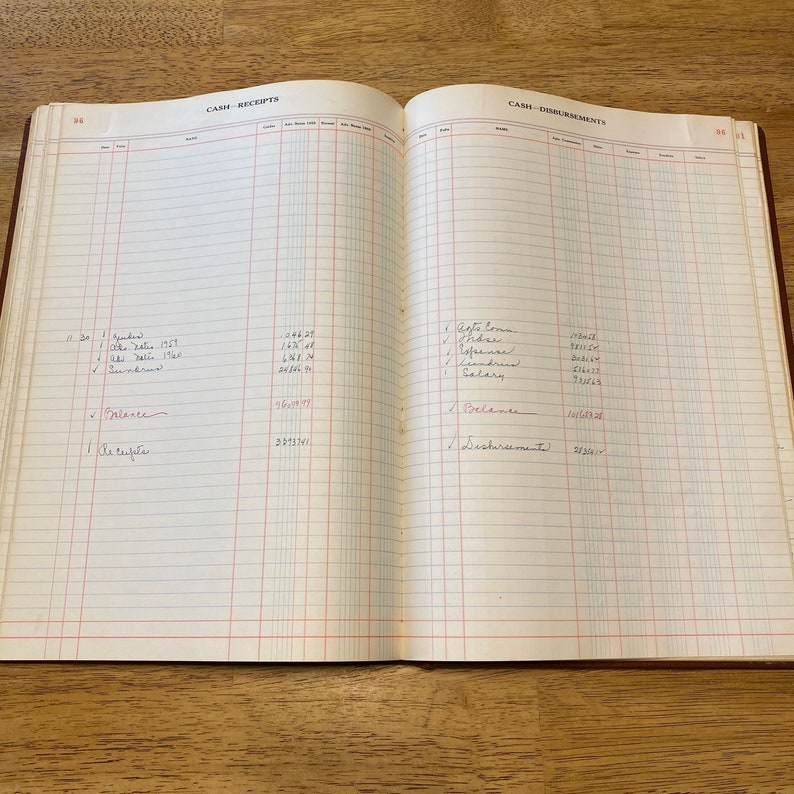 96
CASH—RECEIPTS
Date Folio NAME Guides Adv. Notes 1959 Discount Adv. Notes 1960
11 30 Guides 1046 29
Adv. Notes 1959 1675 48
Adv Notes 1960 6368 74
Sundries 24846 90
Balance 96099 99
Receipts 33937 41
CASH—DISBURSEMENTS
96
91
Date Folio NAME Agts. Commission Expense Sundries Salary
Agts Comm. 1034 58
Expense 3031 62
Sundries 5160 77
Salary 9315 63
Balance 101683 28
Disbursements 28354 12